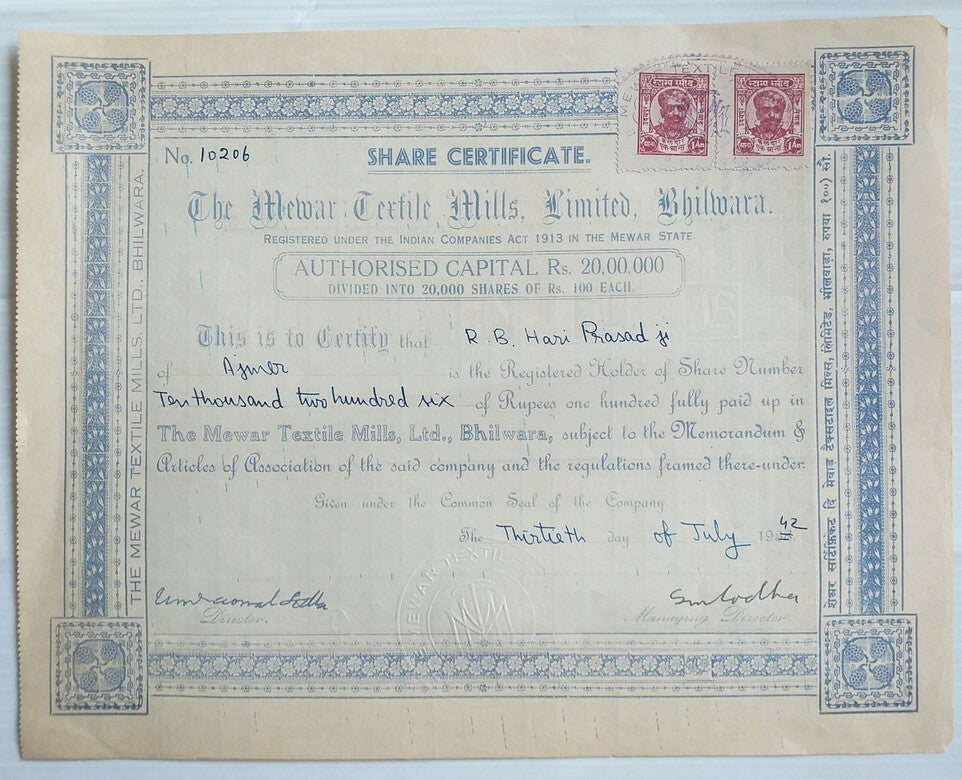 No. 10206
SHARE CERTIFICATE.
The Mewar Textile Mills, Limited, Bhilwara.
REGISTERED UNDER THE INDIAN COMPANIES ACT 1913 IN THE MEWAR STATE
AUTHORISED CAPITAL Rs. 20,00,000
DIVIDED INTO 20,000 SHARES OF Rs. 100 EACH.
This is to Certify that R. B. Hari Prasad ji
of Ajmer is the Registered Holder of Share Number
Ten thousand two hundred six of Rupees one hundred fully paid up in
The Mewar Textile Mills, Ltd., Bhilwara, subject to the Memorandum &
Articles of Association of the said company and the regulations framed there-under.
Given under the Common Seal of the Company
The Thirtieth day of July 19 42
Director.
Managing Director
THE MEWAR TEXTILE MILLS, LTD., BHILWARA.
शेअर सर्टिफ़िकेट दि मेवाड़ टेक्सटाइल मिल्स, लिमिटेड, भीलवाड़ा, रुपया १००) सौ.
MEWAR TEXTIL
एक आना
1An
एक आना
1An